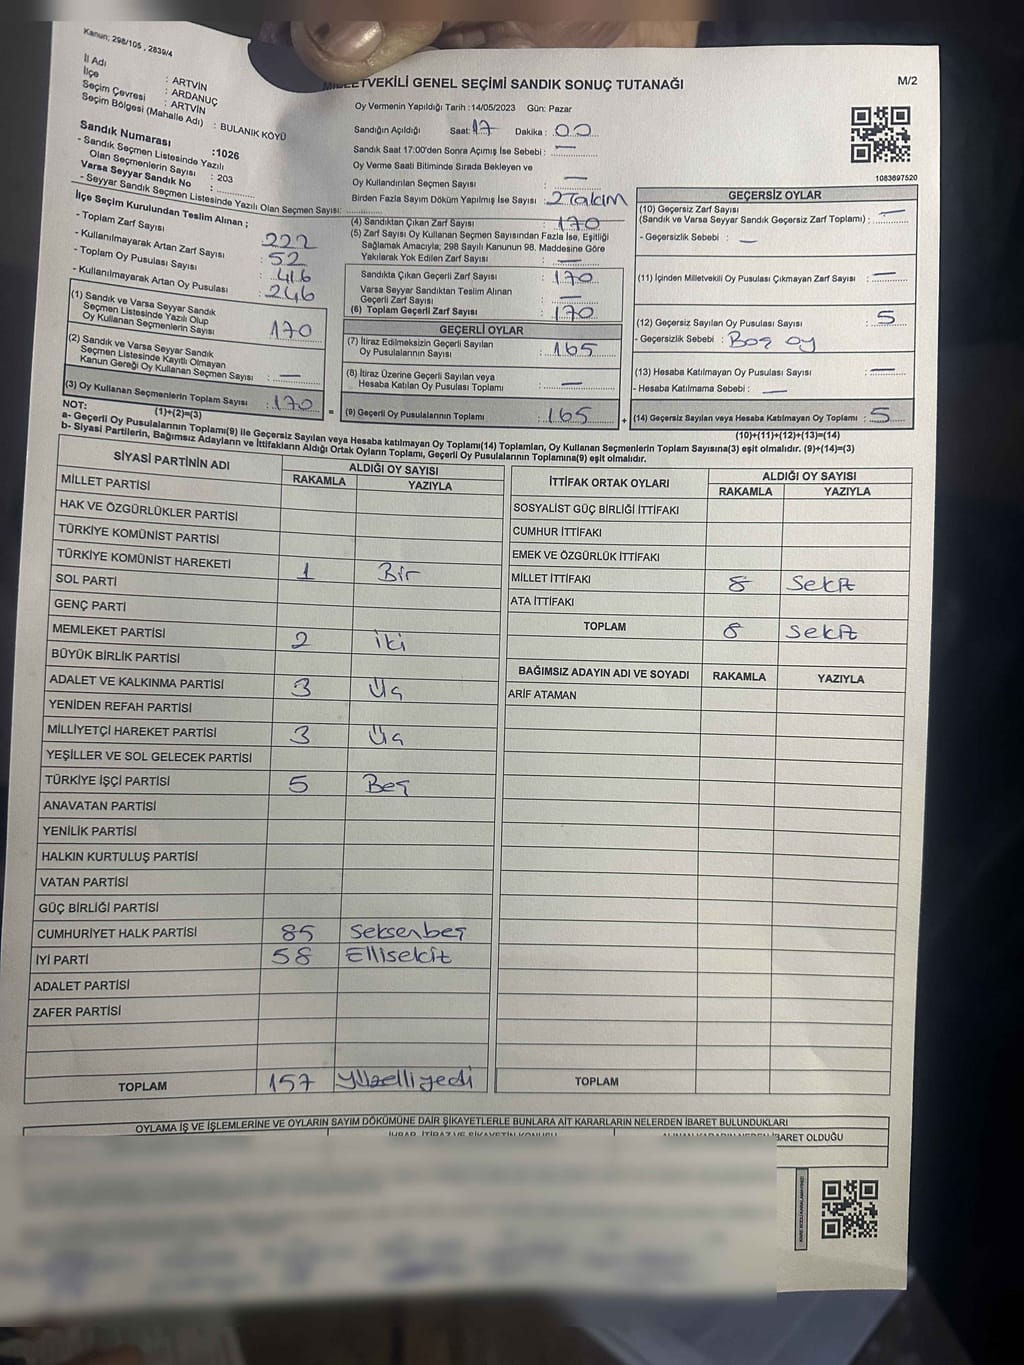 Kanun; 298/105 , 2839/4
İl Adı : ARTVİN
İlçe : ARDANUÇ
Seçim Çevresi : ARTVİN
Seçim Bölgesi (Mahalle Adı) : BULANIK KÖYÜ
Sandık Numarası :1026
- Sandık Seçmen Listesinde Yazılı
Olan Seçmenlerin Sayısı : 203
Varsa Seyyar Sandık No :
- Seyyar Sandık Seçmen Listesinde Yazılı Olan Seçmen Sayısı:
İlçe Seçim Kurulundan Teslim Alınan ;
- Toplam Zarf Sayısı : 222
- Kullanılmayarak Artan Zarf Sayısı : 52
- Toplam Oy Pusulası Sayısı : 416
- Kullanılmayarak Artan Oy Pusulası : 246
(1) Sandık ve Varsa Seyyar Sandık
Seçmen Listesinde Yazılı Olup
Oy Kullanan Seçmenlerin Sayısı : 170
(2) Sandık ve Varsa Seyyar Sandık
Seçmen Listesinde Kayıtlı Olmayan
Kanun Gereği Oy Kullanan Seçmen Sayısı : —
(3) Oy Kullanan Seçmenlerin Toplam Sayısı : 170
(1)+(2)=(3)
MİLLETVEKİLİ GENEL SEÇİMİ SANDIK SONUÇ TUTANAĞI
M/2
Oy Vermenin Yapıldığı Tarih :14/05/2023 Gün: Pazar
Sandığın Açıldığı Saat: 17 Dakika : 00
Sandık Saat 17:00'den Sonra Açımış İse Sebebi : —
Oy Verme Saati Bitiminde Sırada Bekleyen ve
Oy Kullandırılan Seçmen Sayısı : —
Birden Fazla Sayım Döküm Yapılmış İse Sayısı : 2 Takım
(4) Sandıktan Çıkan Zarf Sayısı : 170
(5) Zarf Sayısı Oy Kullanan Seçmen Sayısından Fazla İse, Eşitliği
Sağlamak Amacıyla; 298 Sayılı Kanunun 98. Maddesine Göre
Yakılarak Yok Edilen Zarf Sayısı : —
Sandıkta Çıkan Geçerli Zarf Sayısı : 170
Varsa Seyyar Sandıktan Teslim Alınan
Geçerli Zarf Sayısı : —
(6) Toplam Geçerli Zarf Sayısı : 170
GEÇERLİ OYLAR
(7) İtiraz Edilmeksizin Geçerli Sayılan
Oy Pusulalarının Sayısı : 165
(8) İtiraz Üzerine Geçerli Sayılan veya
Hesaba Katılan Oy Pusulası Toplamı : —
= (9) Geçerli Oy Pusulalarının Toplamı : 165
1083697520
GEÇERSİZ OYLAR
(10) Geçersiz Zarf Sayısı
(Sandık ve Varsa Seyyar Sandık Geçersiz Zarf Toplamı) : —
- Geçersizlik Sebebi : —
(11) İçinden Milletvekili Oy Pusulası Çıkmayan Zarf Sayısı : —
(12) Geçersiz Sayılan Oy Pusulası Sayısı : 5
- Geçersizlik Sebebi : Boş oy
(13) Hesaba Katılmayan Oy Pusulası Sayısı : —
- Hesaba Katılmama Sebebi : —
+ (14) Geçersiz Sayılan veya Hesaba Katılmayan Oy Toplamı : 5
(10)+(11)+(12)+(13)=(14)
NOT:
a- Geçerli Oy Pusulalarının Toplamı(9) ile Geçersiz Sayılan veya Hesaba katılmayan Oy Toplamı(14) Toplamları, Oy Kullanan Seçmenlerin Toplam Sayısına(3) eşit olmalıdır. (9)+(14)=(3)
b- Siyasi Partilerin, Bağımsız Adayların ve İttifakların Aldığı Ortak Oyların Toplamı, Geçerli Oy Pusulalarının Toplamına(9) eşit olmalıdır.
SİYASİ PARTİNİN ADI ALDIĞI OY SAYISI
RAKAMLA YAZIYLA
MİLLET PARTİSİ
HAK VE ÖZGÜRLÜKLER PARTİSİ
TÜRKİYE KOMÜNİST PARTİSİ
TÜRKİYE KOMÜNİST HAREKETİ
SOL PARTİ 1 Bir
GENÇ PARTİ
MEMLEKET PARTİSİ 2 İki
BÜYÜK BİRLİK PARTİSİ
ADALET VE KALKINMA PARTİSİ 3 Üç
YENİDEN REFAH PARTİSİ
MİLLİYETÇİ HAREKET PARTİSİ 3 Üç
YEŞİLLER VE SOL GELECEK PARTİSİ
TÜRKİYE İŞÇİ PARTİSİ 5 Beş
ANAVATAN PARTİSİ
YENİLİK PARTİSİ
HALKIN KURTULUŞ PARTİSİ
VATAN PARTİSİ
GÜÇ BİRLİĞİ PARTİSİ
CUMHURİYET HALK PARTİSİ 85 Seksenbeş
İYİ PARTİ 58 Ellisekiz
ADALET PARTİSİ
ZAFER PARTİSİ
TOPLAM 157 Yüzelliyedi
İTTİFAK ORTAK OYLARI ALDIĞI OY SAYISI
RAKAMLA YAZIYLA
SOSYALİST GÜÇ BİRLİĞİ İTTİFAKI
CUMHUR İTTİFAKI
EMEK VE ÖZGÜRLÜK İTTİFAKI
MİLLET İTTİFAKI 8 Sekiz
ATA İTTİFAKI
TOPLAM 8 Sekiz
BAĞIMSIZ ADAYIN ADI VE SOYADI RAKAMLA YAZIYLA
ARİF ATAMAN
TOPLAM
OYLAMA İŞ VE İŞLEMLERİNE VE OYLARIN SAYIM DÖKÜMÜNE DAİR ŞİKAYETLERLE BUNLARA AİT KARARLARIN NELERDEN İBARET BULUNDUKLARI